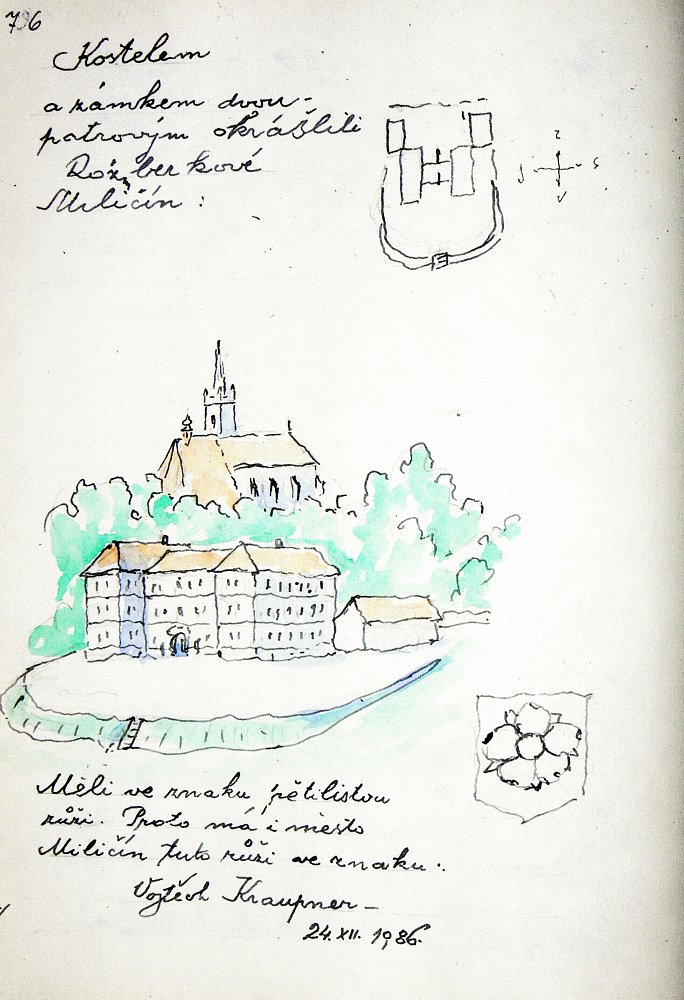 736
Kostelem
a zámkem dvou-
patrovým okrášlili
Rožmberkové
Miličín :
z
j s
v
Měli ve znaku pětilistou
růži. Proto má i město
Miličín tuto růži ve znaku.
Vojtěch Kraupner
24. XII. 1986.